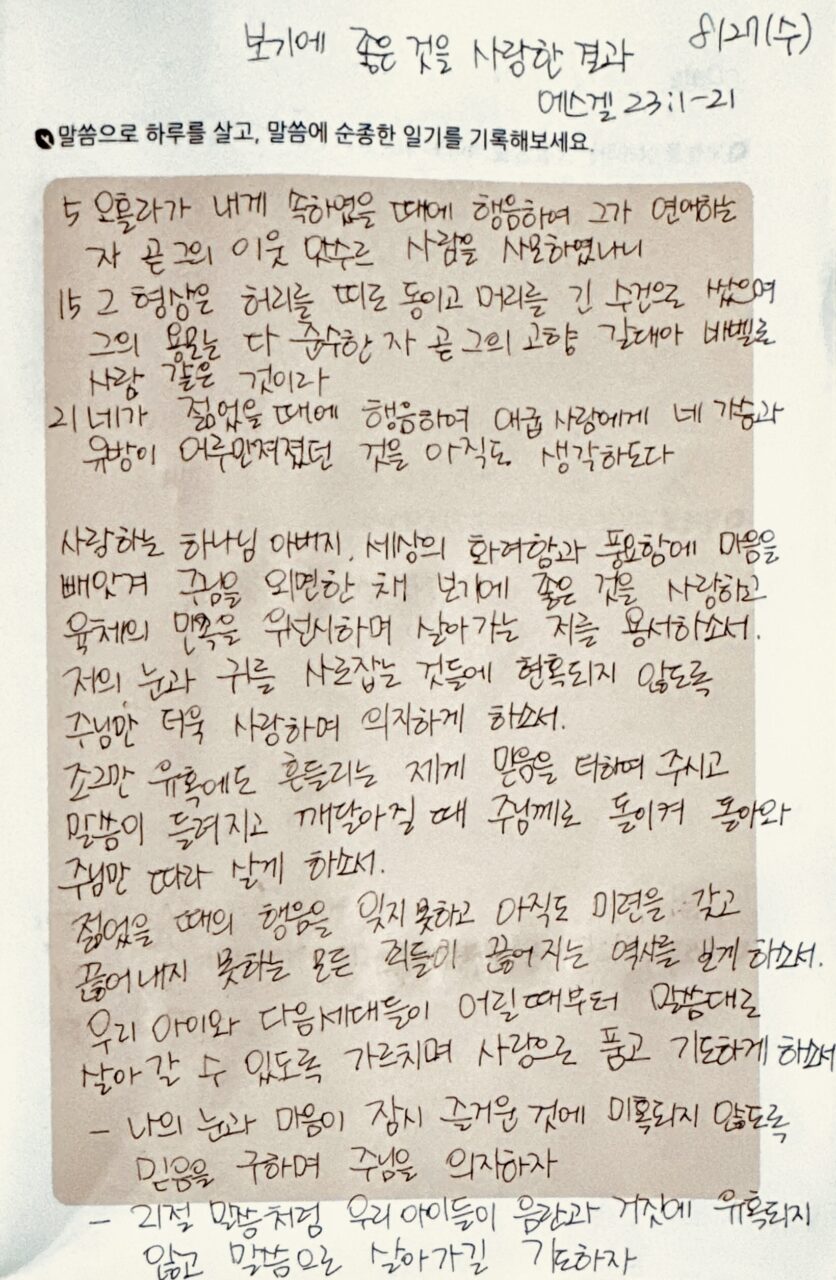 보기에 좋은 것을 사랑한 결과 8/27(수)
에스겔 23:1-21
말씀으로 하루를 살고, 말씀에 순종한 일기를 기록해보세요.
5 오홀라가 내게 속하였을 때에 행음하여 그가 연애하는
자 곧 그의 이웃 앗수르 사람을 사모하였나니
15 그 형상은 허리를 띠로 동이고 머리를 긴 수건으로 쌌으며
그의 용모는 다 준수한 자 곧 그의 고향 갈대아 바벨론
사람 같은 것이라
21 네가 젊었을 때에 행음하여 애굽 사람에게 네 가슴과
유방이 어루만져졌던 것을 아직도 생각하도다
사랑하는 하나님 아버지, 세상의 화려함과 풍요함에 마음을
빼앗겨 주님을 외면한 채 보기에 좋은 것을 사랑하고
육체의 만족을 우선시하며 살아가는 저를 용서하소서.
저의 눈과 귀를 사로잡는 것들에 현혹되지 않도록
주님만 더욱 사랑하며 의지하게 하소서.
조그만 유혹에도 흔들리는 제게 믿음을 더하여 주시고
말씀이 들려지고 깨달아질 때 주님께로 돌이켜 돌아와
주님만 따라 살게 하소서.
젊었을 때의 행음을 잊지 못하고 아직도 미련을 갖고
끊어내지 못하는 모든 죄들이 끊어지는 역사를 보게 하소서.
우리 아이와 다음세대들이 어릴때부터 말씀대로
살아갈 수 있도록 가르치며 사랑으로 품고 기도하게 하소서
- 나의 눈과 마음이 잠시 즐거운 것에 미혹되지 않도록
믿음을 구하며 주님을 의지하자
- 21절 말씀처럼 우리 아이들이 음란과 거짓에 유혹되지
않고 말씀으로 살아가길 기도하자